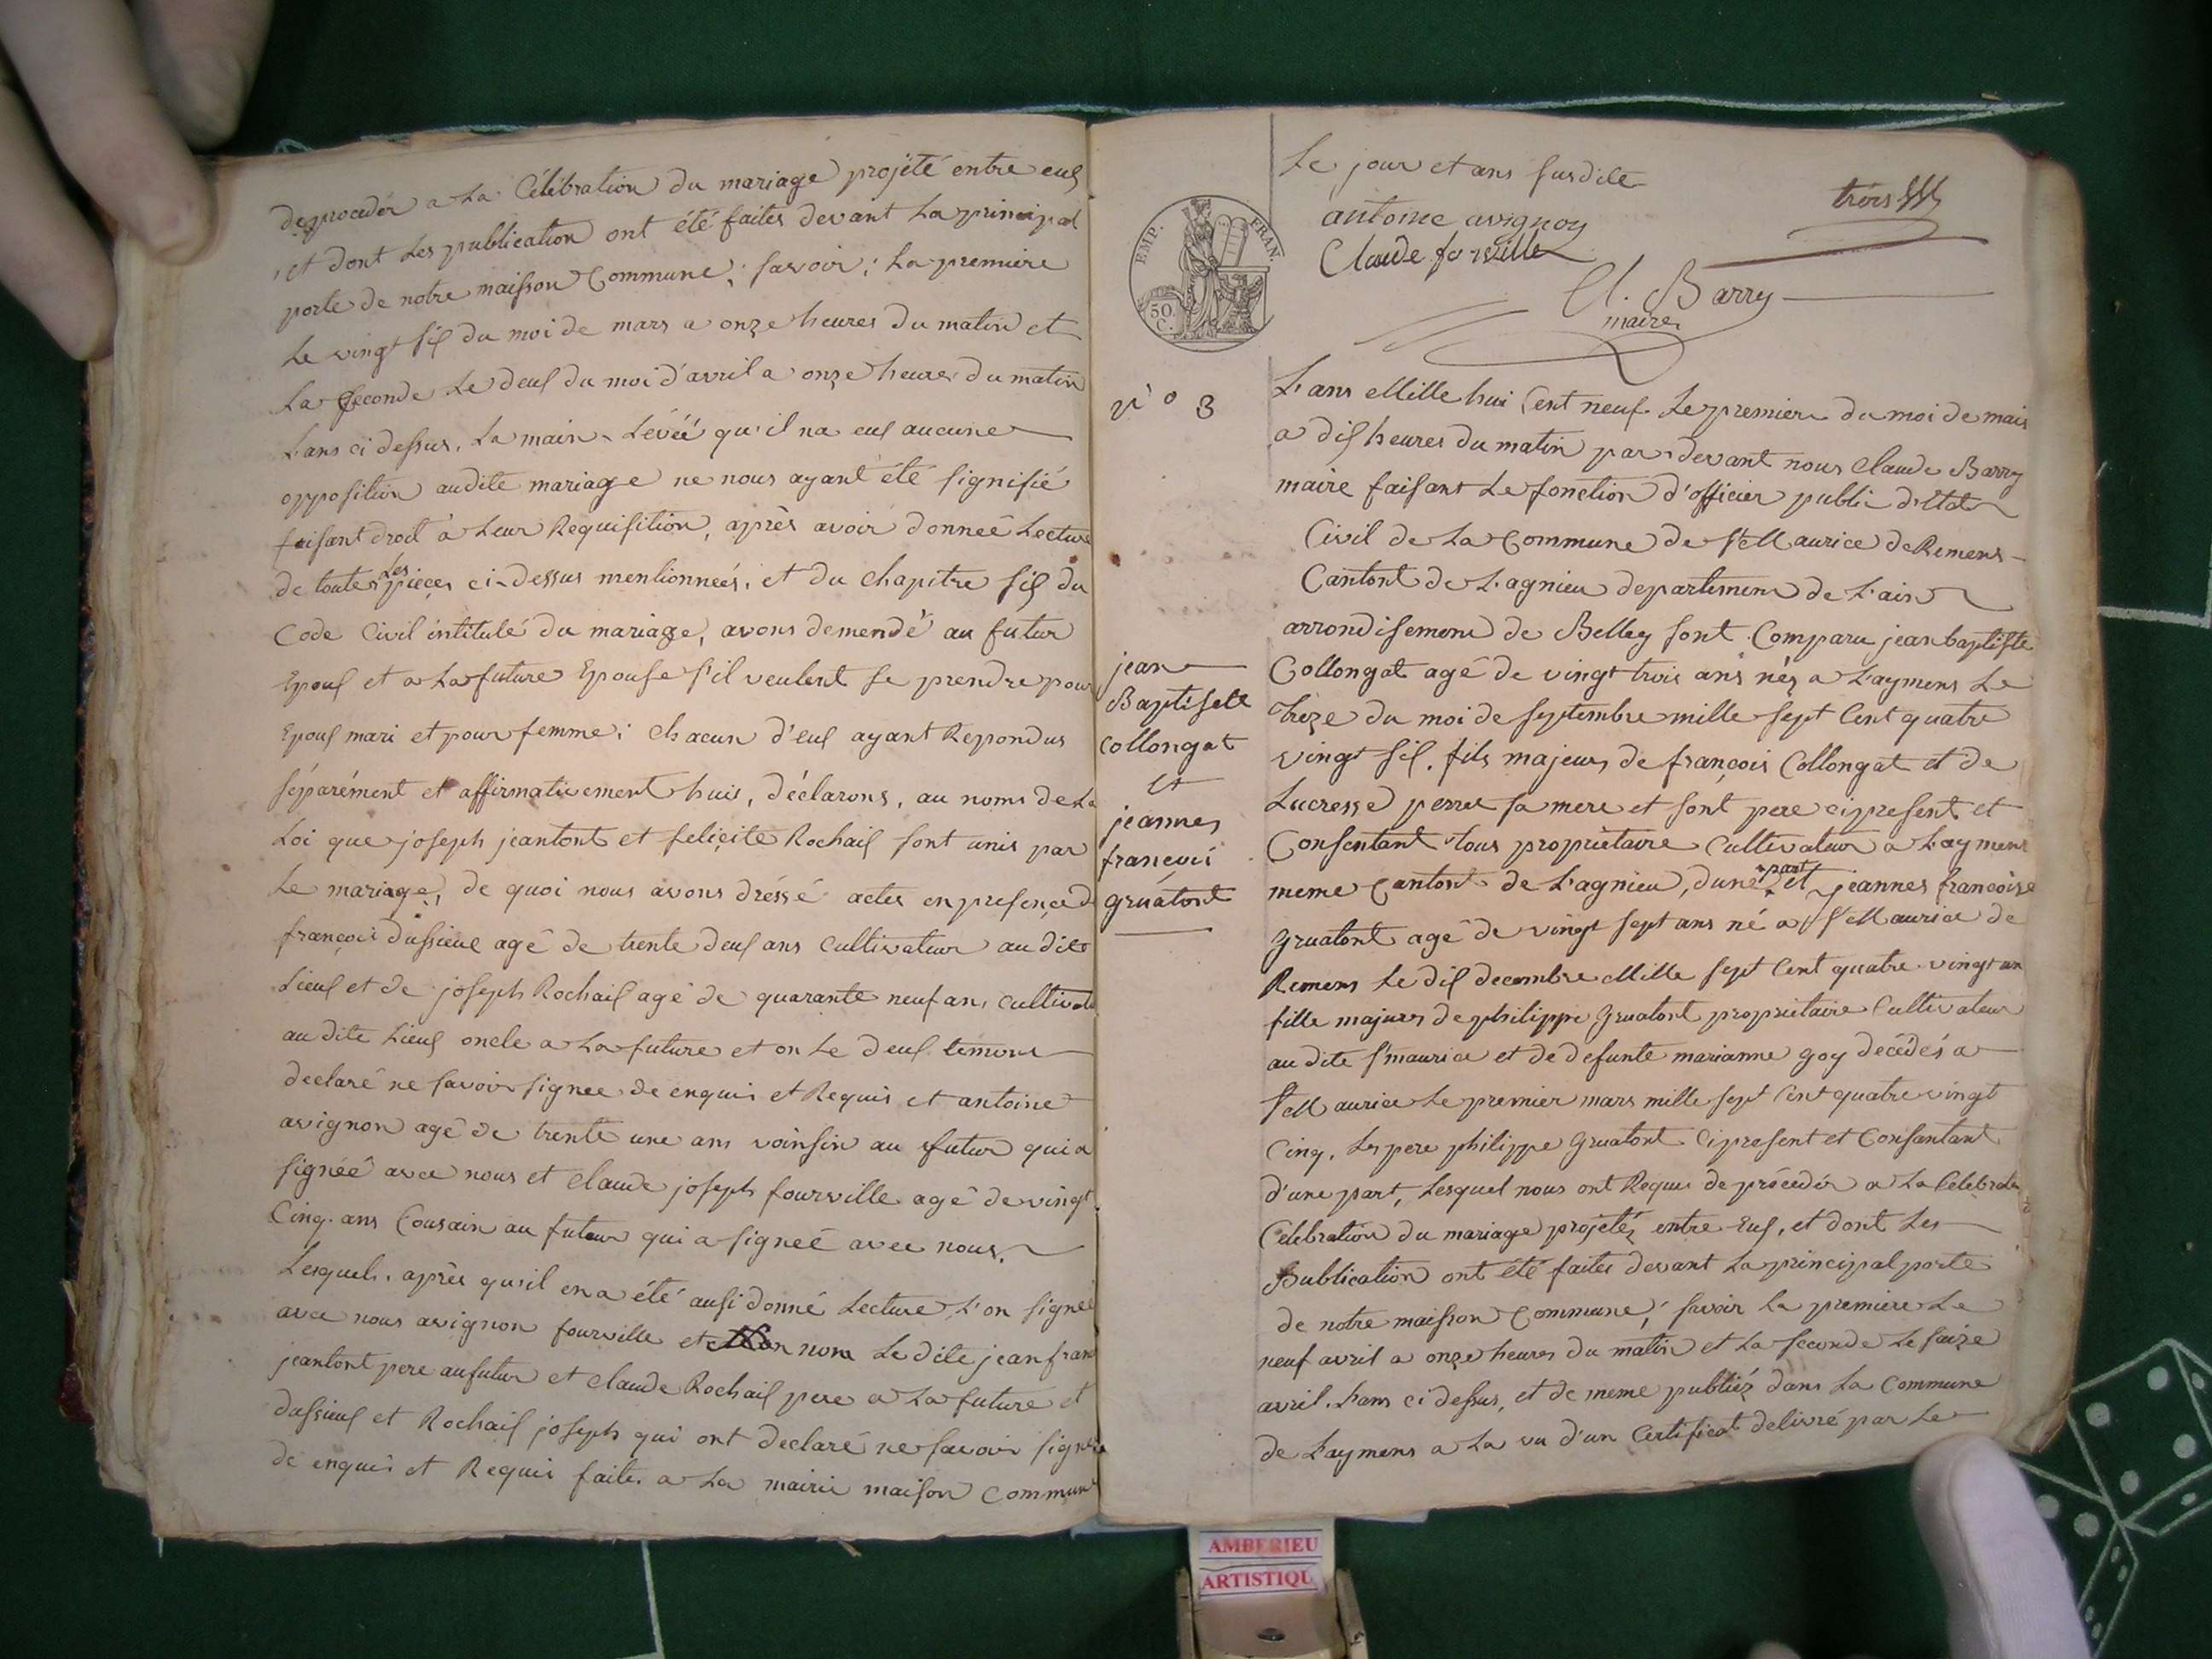 de proceder a la Célébration du mariage projété entre eus
, et dont Les publication ont été faites devant La principal
porte de notre maison Commune ; savoir ; La premiere
Le vingt six du moi de mars a onze heures du matin et
La seconde Le deux du moi d'avril a onze heures du matin
L'ans ci dessus. La main Lévéé qu'il na eus aucune
opposition audite mariage ne nous ayant été signifié
faisant droit à Leur Requisition, après avoir donneé Lecture
de toutes Les pieces ci-dessus mentionneés, et du chapitre six du
Code Civil intitulé du mariage, avons demendé au futur
Epoux et a La future Epouse s'il veulent se prendre pour
Epoux mari et pour femme ; chacun d'eux ayant Repondus
séparément et affirmativement huis, déclarons, au noms de La
Loi que joseph jeantont et feliçite Rochaix sont unis par
Le mariage, de quoi nous avons dréssé actes en presençe d
françois dussieux agé de trente deux ans cultivateur au dite
Lieux et de joseph Rochaix agé de quarante neuf ans cultivate
au dite Lieux oncle a La future et on Le deux temoins
declaré ne savoir signee de enquis et Requis et antoine
avignon agé de trente une ans voinsin au futur qui a
signéé avec nous et claude joseph fourville agé de vingt
Cinq. ans Cousain au futeur qui a signeé avec nous.
Lesquels. après qu'il en a été aussi donné Lecture L'on signeé
avec nous avignon fourville et non Le dite jean fran
jeantont pere au futur et claude Rochaix pere a La future et
dussieux et Rochaix joseph qui ont declaré ne savoir signer
de enquis et Requis faites a La mairie maison commune
Le jour et ans susdite
trois
antoine avignon
Claude forville
Cl. Barry
maire
EMP. FRAN.
50 C.
n° 3
L'ans Mille hui Cent neuf. Le premiere du moi de mais
a dix heures du matin par devant nous Claude Barry
maire faisant Le fonction d'officier public d'Etat
Civil de La Commune de St Maurice de Remens
Cantont de L'agnieu departement de L'ain
arrondisement de Belley sont Comparu jean baptiste
Collongat agé de vingt trois ans néz a L'aymens Le
treze du moi de septembre mille sept Cent quatre
vingt six. fils majeur de françois Collongat et de
Lucresse perret sa mere et sont pere ci present et
Consentant tous proprietaire Cultivateur a Laymens
meme Cantont de L'agnieu, dune part et jeannes francoise
Gruatont agé de vingt sept ans né a St Maurice de
Remens Le dix decembre Mille sept Cent quatre vingt un
fille majures de philippe Gruatont proprietaire Cultivateur
au dite St maurice et de defunte marianne goy decédés a
St Maurice Le premier mars mille sept Cent quatre vingt
Cinq. Les pere philippe Gruatont ci present et Consantant
d'une part, Lesquel nous ont Requis de procedér a La Celebrat
Celebration du mariage projetéz entre Eux, et dont Les
Publication ont été faites devant La principal porte
de notre maison Commune ; savoir La premiere Le
neuf avril a onze heures du matin et La seconde Le saize
avril. L'ans ci dessus, et de meme publiéz dans La Commune
de Laymens a La vu d'un Certificat delivré par Le
jean
Baptisete
Collongat
et
jeannes
françois
gruatont
AMBERIEU
ARTISTIQU